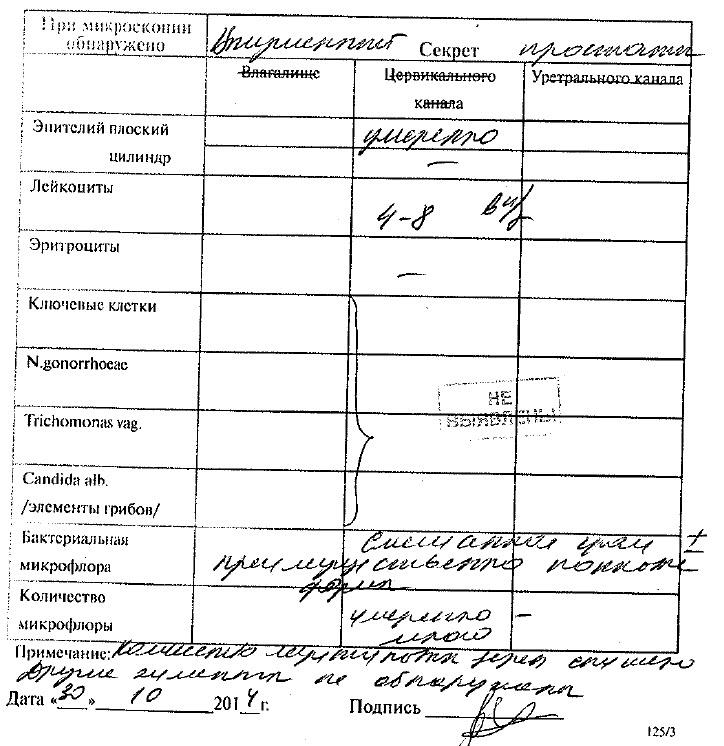 При микроскопии обнаружено
Секрет простаты
Влагалище
Цервикального канала
Уретрального канала
Эпителий плоский
умеренно
цилиндр
–
Лейкоциты
4-8 в п/з
Эритроциты
–
Ключевые клетки
N.gonorrhoeae
НЕ
ВЫЯВЛЕНЫ
Trichomonas vag.
Candida alb.
/элементы грибов/
Бактериальная
смешанная грам ±
микрофлора
преимущественно
форм
Количество
умеренно –
микрофлоры
много
Примечание:
другие элементы не обнаружены
Дата «30» 10 2014 г.
Подпись
125/3